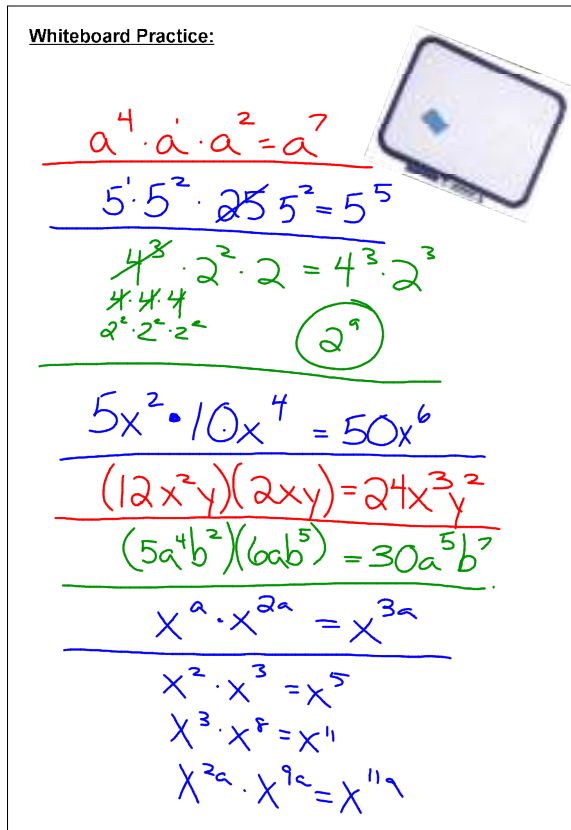 Whiteboard Practice:
a⁴ · a¹ · a² = a⁷
5¹ · 5² · 25 5² = 5⁵
4³ · 2² · 2 = 4³ · 2³
4 · 4 · 4
2² · 2² · 2²
2⁹
5x² • 10x⁴ = 50x⁶
(12x²y)(2xy) = 24x³y²
(5a⁴b²)(6ab⁵) = 30a⁵b⁷
xᵃ · x²ᵃ = x³ᵃ
x² · x³ = x⁵
x³ · x⁸ = x¹¹
x²ᵃ · x⁹ᵃ = x¹¹ᵃ